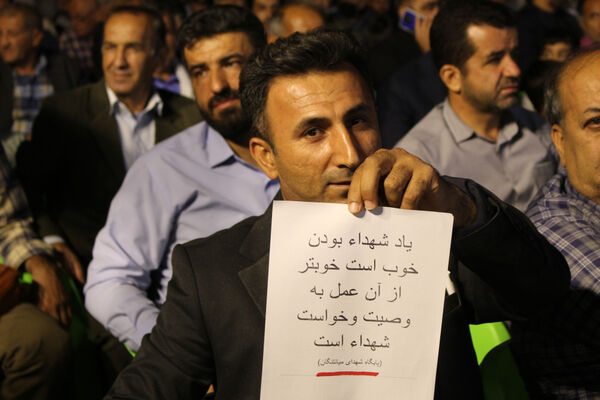 یاد شهداء بودن
خوب است خوبتر
از آن عمل به
وصیت وخواست
شهداء است
(پایگاه شهدای میانتنگان)